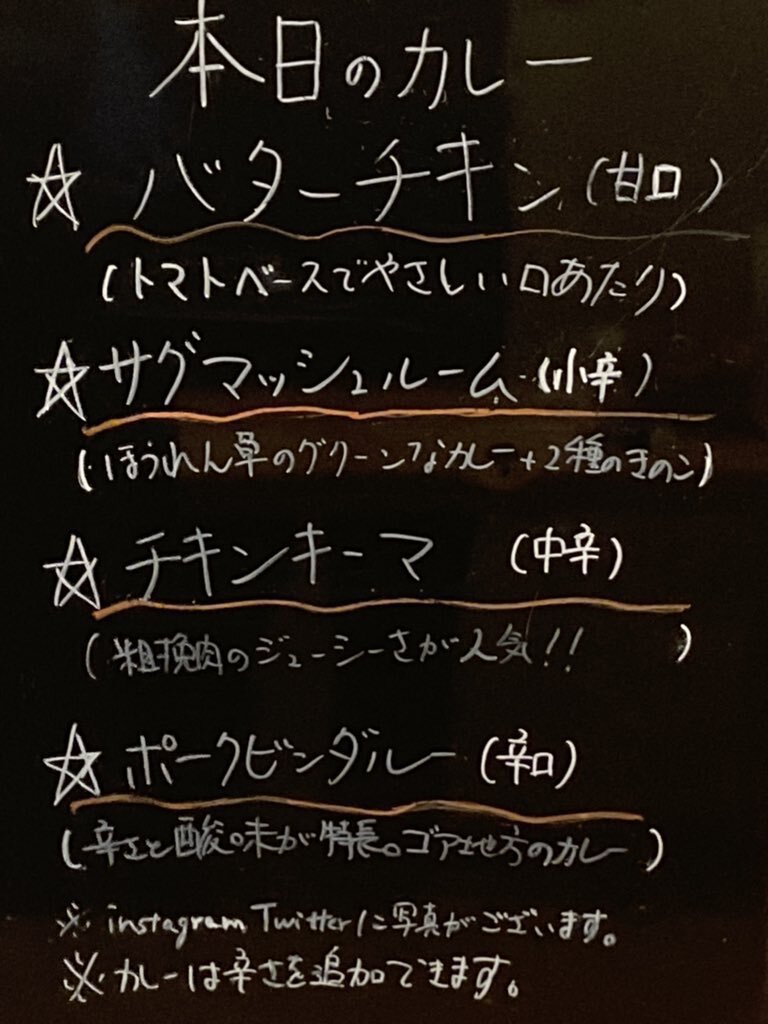 本日のカレー
☆ バターチキン (甘口)
(トマトベースでやさしい口あたり)
☆ サグマッシュルーム (小辛)
(ほうれん草のグリーンなカレー+2種のきのこ)
☆ チキンキーマ (中辛)
(粗挽肉のジューシーさが人気!!)
☆ ポークビンダルー (辛口)
(辛さと酸味が特長。ゴア地方のカレー)
※ instagram Twitterに写真がございます。
※ カレーは辛さを追加できます。